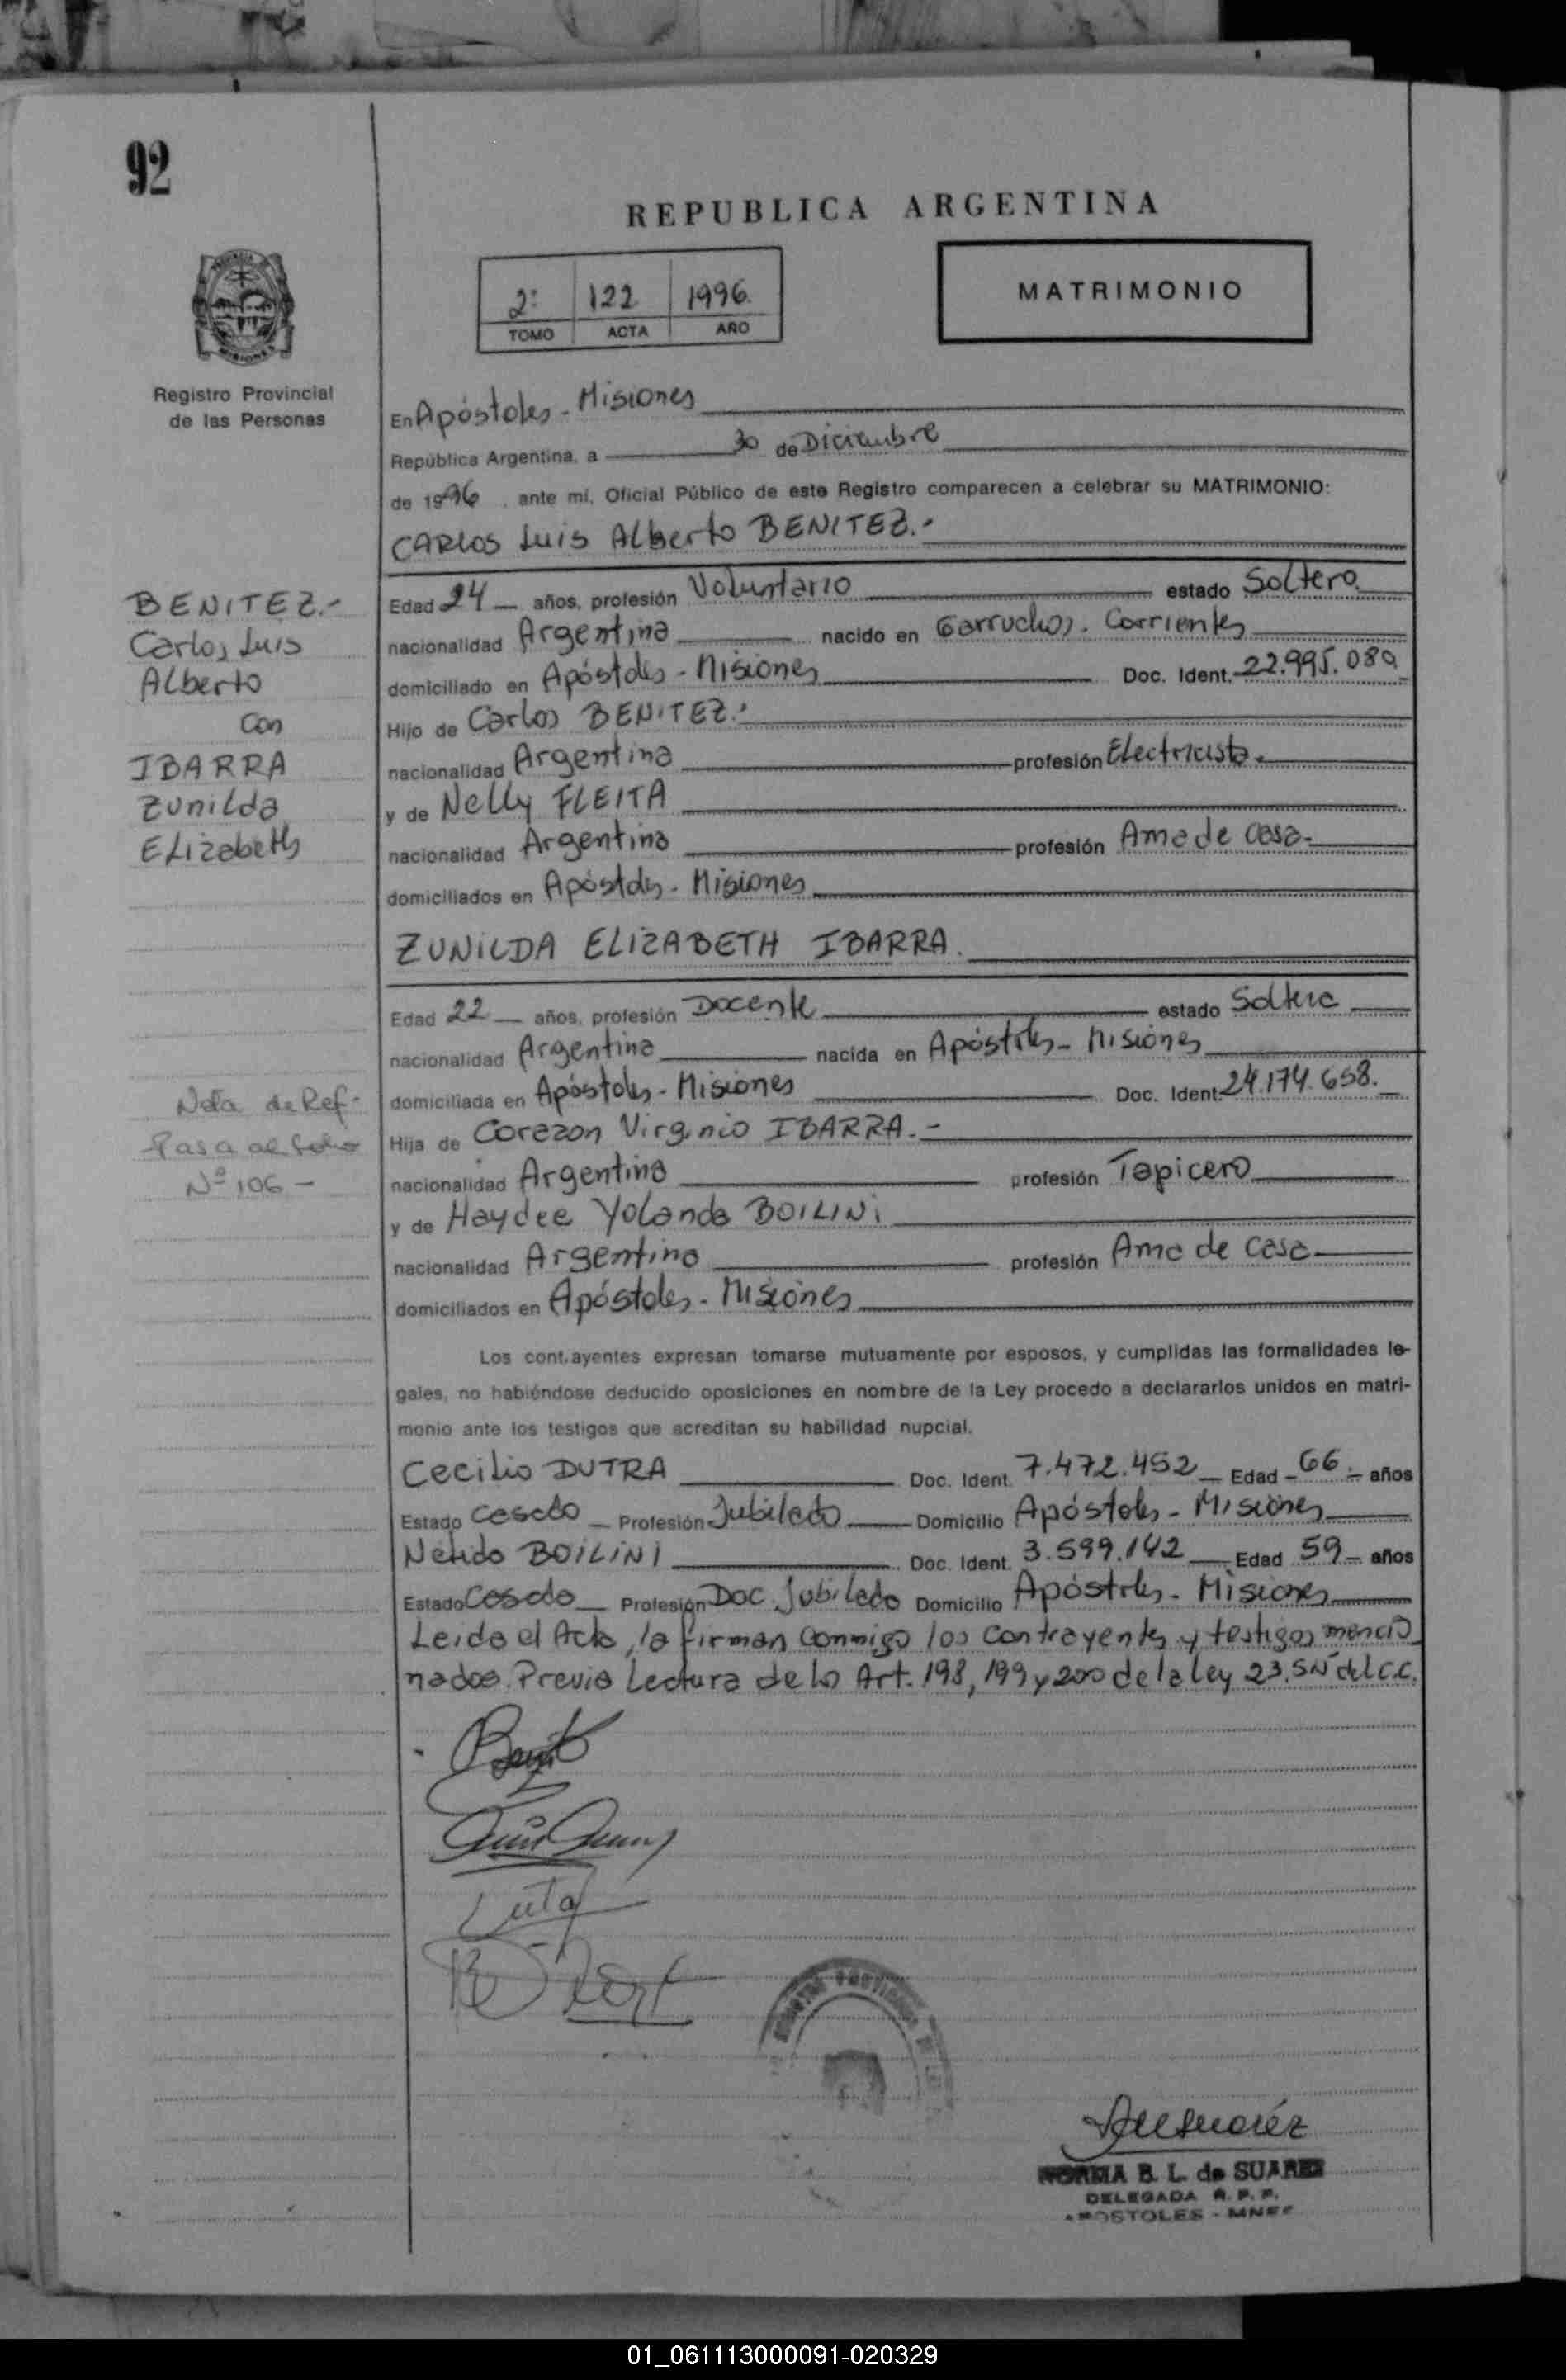 92
REPUBLICA ARGENTINA
2º 122 1996.
TOMO ACTA AÑO
MATRIMONIO
Registro Provincial
de las Personas
En Apóstoles - Misiones
República Argentina, a 30 de Diciembre
de 1996, ante mi, Oficial Público de este Registro comparecen a celebrar su MATRIMONIO:
CARLOS Luis Alberto BENITEZ.-
BENITEZ.-
Carlos Luis
Alberto
con
IBARRA
Zunilda
Elizabeth
Edad 24 años, profesión Voluntario estado Soltero
nacionalidad Argentina nacido en Garruchos. Corrientes
domiciliado en Apóstoles - Misiones Doc. Ident. 22.995.089
Hijo de Carlos BENITEZ.-
nacionalidad Argentina profesión Electricista.
y de Nelly FLEITA
nacionalidad Argentina profesión Ama de casa-
domiciliados en Apóstoles - Misiones
ZUNILDA ELIZABETH IBARRA.
Edad 22 años, profesión Docente estado Soltera
nacionalidad Argentina nacida en Apóstoles - Misiones
domiciliada en Apóstoles - Misiones Doc. Ident. 24.174.658.
Hija de Corazon Virginio IBARRA.-
nacionalidad Argentina profesión Tapicero
y de Haydee Yolanda BOILINI
nacionalidad Argentina profesión Ama de casa
domiciliados en Apóstoles - Misiones
Nota de Ref-
Pasa al folio
Nº 106 -
Los contrayentes expresan tomarse mutuamente por esposos, y cumplidas las formalidades le-
gales, no habiéndose deducido oposiciones en nombre de la Ley procedo a declararlos unidos en matri-
monio ante los testigos que acreditan su habilidad nupcial.
Cecilio DUTRA Doc. Ident. 7.472.452 Edad 66 años
Estado casado Profesión Jubilado Domicilio Apóstoles - Misiones
Nelido BOILINI Doc. Ident. 3.599.142 Edad 59 años
Estado Casado Profesión Doc. Jubilado Domicilio Apóstoles - Misiones
Leida el Acta, la firman conmigo los contrayentes y testigos mencio
nados. Previa Lectura de los Art. 198, 199 y 200 de la Ley del C.C.
NORMA B. L. de SUAREZ
DELEGADA R. P. P.
APOSTOLES - MNES
01_061113000091-020329